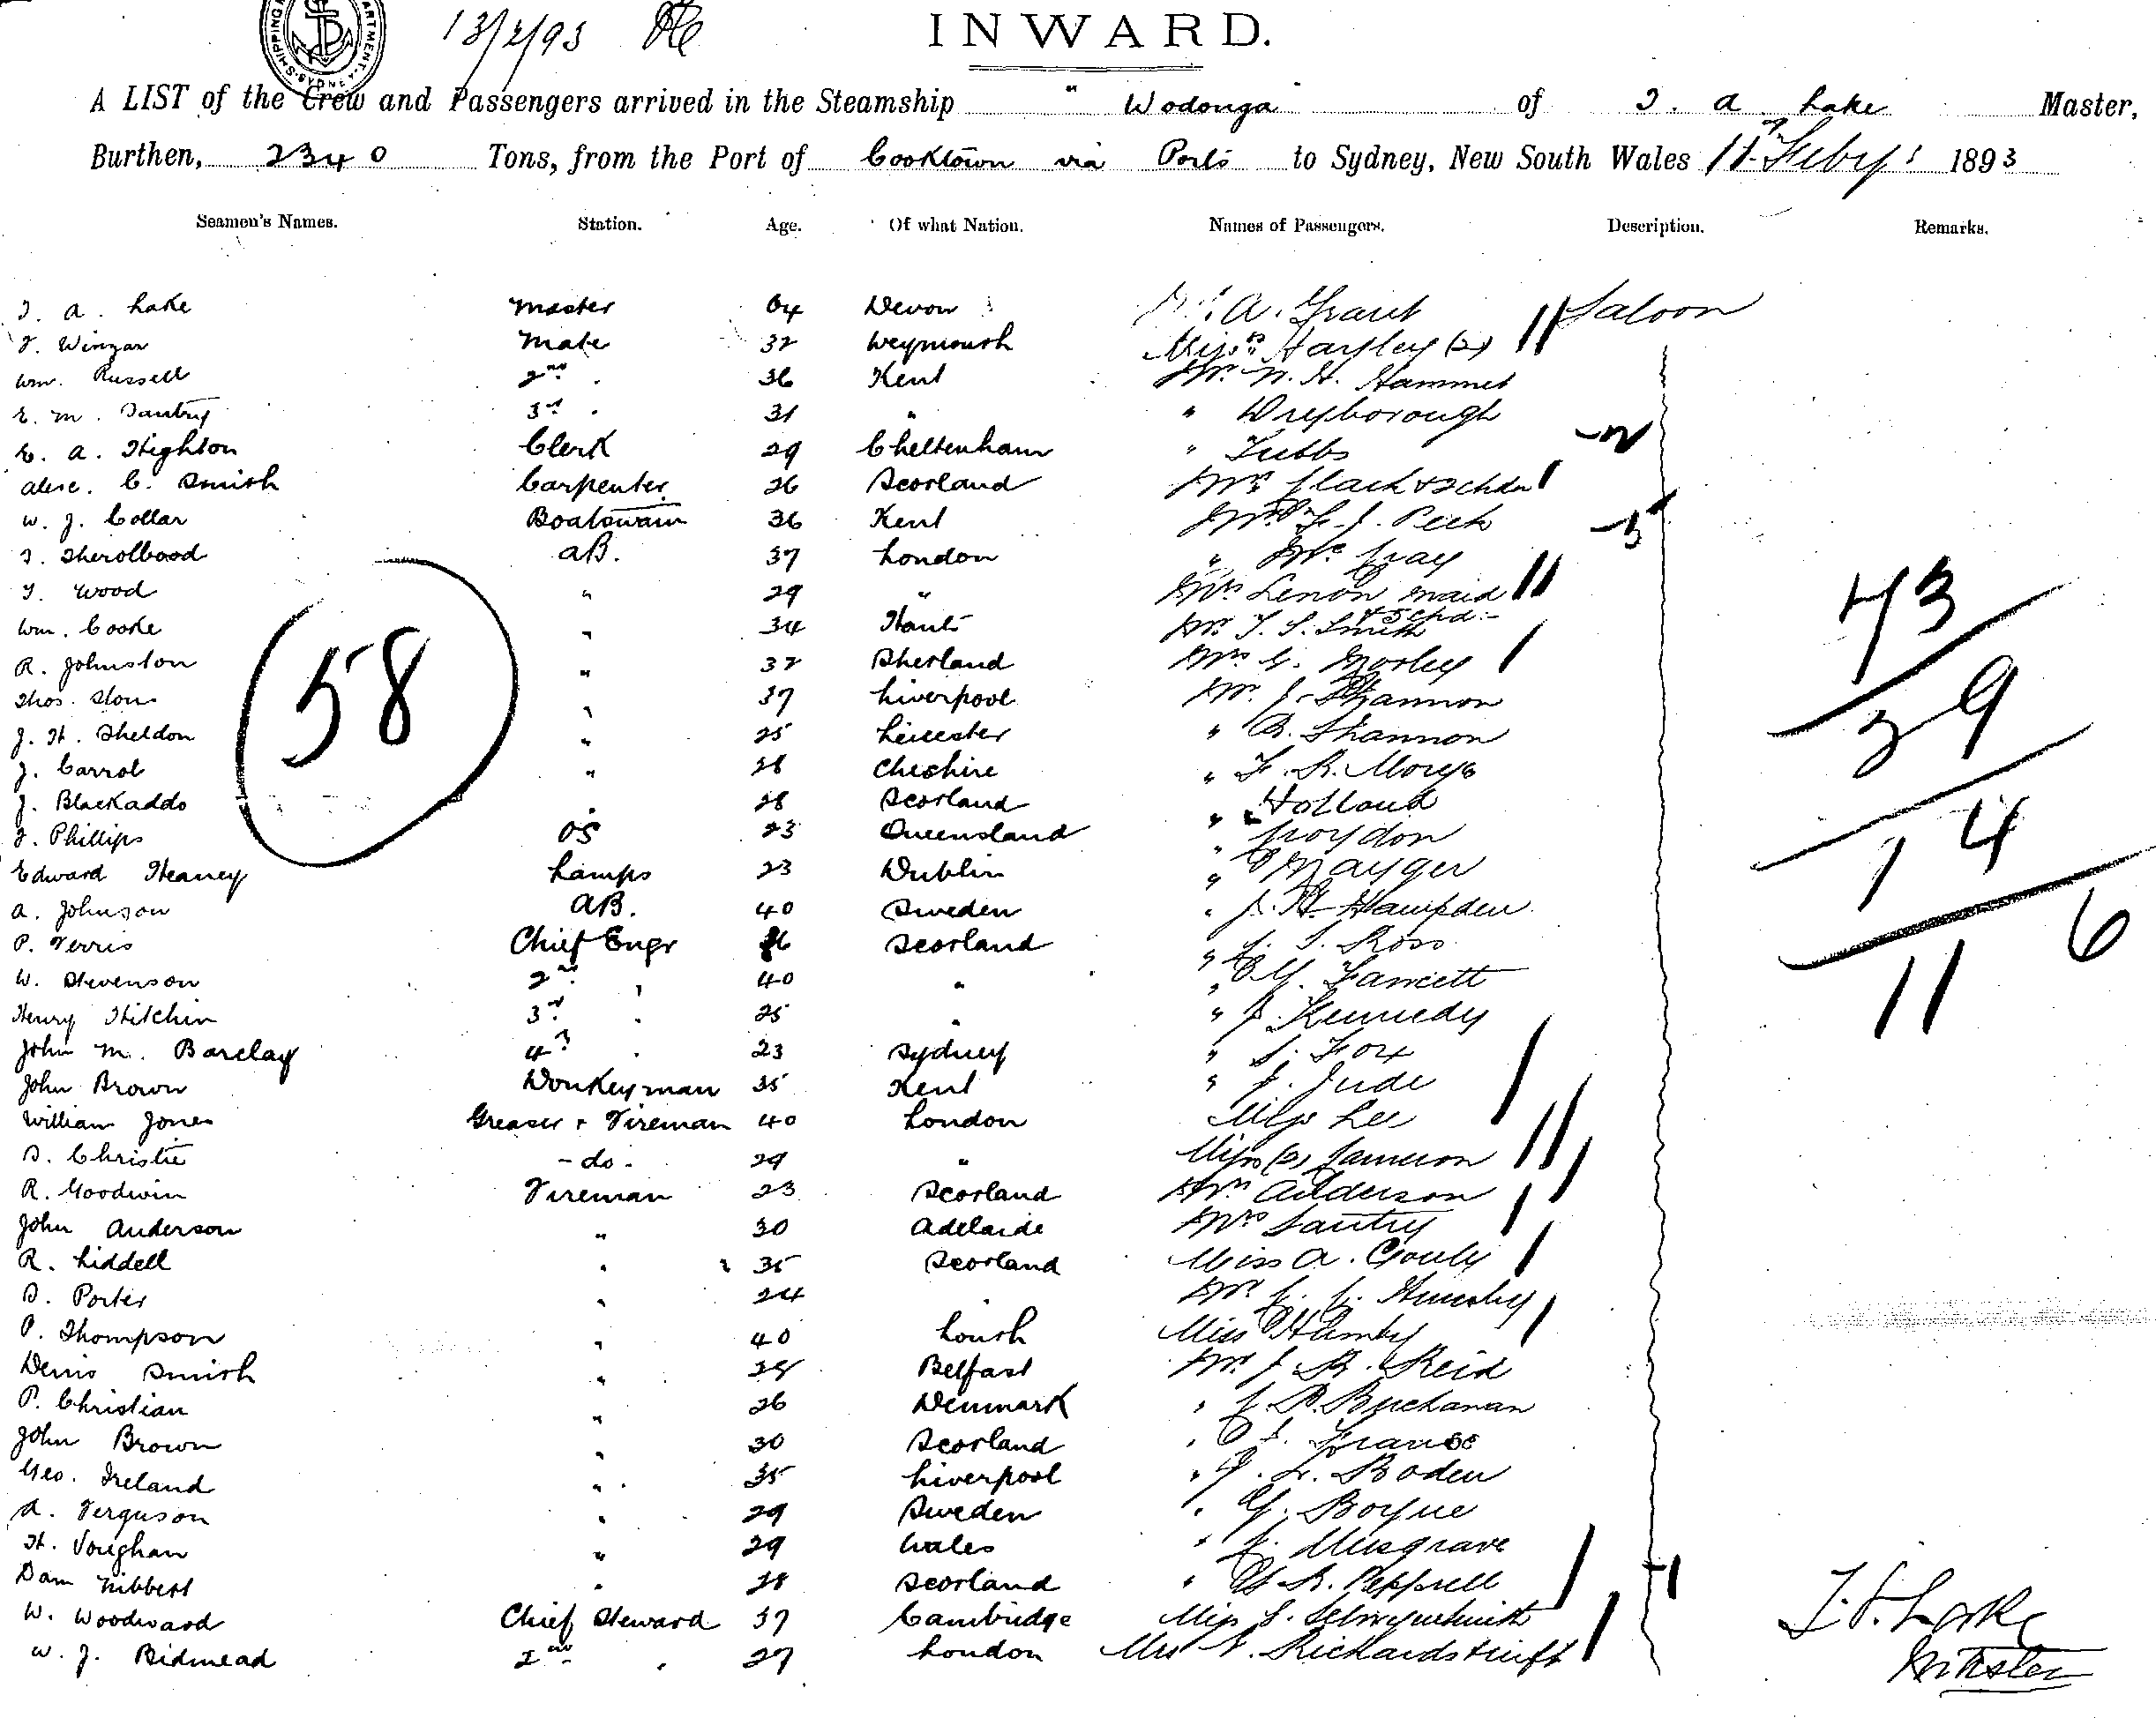 13/2/93
INWARD.
A LIST of the Crew and Passengers arrived in the Steamship "Wodonga" of T. A Lake Master,
Burthen, 2340 Tons, from the Port of Cooktown via Ports to Sydney, New South Wales Feby 1893
Seamen's Names. Station. Age. Of what Nation. Names of Passengers. Description. Remarks.
T. A. Lake Master 64 Devon A. Grant Saloon
F. Winzar Mate 32 Weymouth Misses Hartley (2)
Wm. Russell 2nd " 36 Kent Mr. W. H. Hammet
E. M. Tantry 3rd " 31 " "
E. A. Highton Clerk 29 Cheltenham " Tubbs
Alexr. C. Smith Carpenter 26 Scotland Mrs Clark + 2 chdn
W. J. Collar Boatswain 36 Kent Mr. F. J. Peek
AB. 37 London "
T. Wood " 29 " Mrs Lenon maid + 5 chd:-
Wm. Cooke " 34 Hants Mr. T. S. Smith
R. Johnston " 32 Shetland Mrs G. Morley
Thos. " 37 Liverpool Mr. J. Shannon
J. H. Sheldon " 25 Leicester " B. Shannon
J. Carrol " 28 Cheshire "
J. Blackaddo " 28 Scotland " Holland
F. Phillips OS 23 Queensland " Croydon
Edward Heaney Lamps 23 Dublin " Mayger
A. Johnson AB. 40 Sweden " J. H. Hampden
P. Ferris Chief Engr 36 Scotland " Ross
W. Stevenson 2nd " 40 " " Fawcett
Henry Hitchin 3rd " 25 " " J. Kennedy
John M. Barclay 4th " 23 Sydney " S. Fox
John Brown Donkeyman 35 Kent " J. Jude
William Jones Greaser + Fireman 40 London Miss Lee
D. Christie - do - 29 " Miss (2) Cameron
R. Goodwin Fireman 23 Scotland Mrs Anderson
John Anderson " 30 Adelaide Mrs Tantry
R. Liddell " 35 Scotland Miss A.
D. Porter " 24 " Mr.
P. Thompson " 40 Louth Miss
Denis Smith " 28 Belfast Mr. J. R. Reid
P. Christian " 26 Denmark " Buchanan
John Brown " 30 Scotland "
Geo. Ireland " 35 Liverpool " Boden
A. Ferguson " 29 Sweden " G. Bogue
H. Vaughan " 29 Wales " Musgrave
Dam Nibbert " 28 Scotland " Pepprell
W. Woodward Chief Steward 37 Cambridge Miss S.
W. J. Bidmead 2nd " 27 London Mrs
58
2
3
1
43
29
14
11 6
T. A. Lake
Master